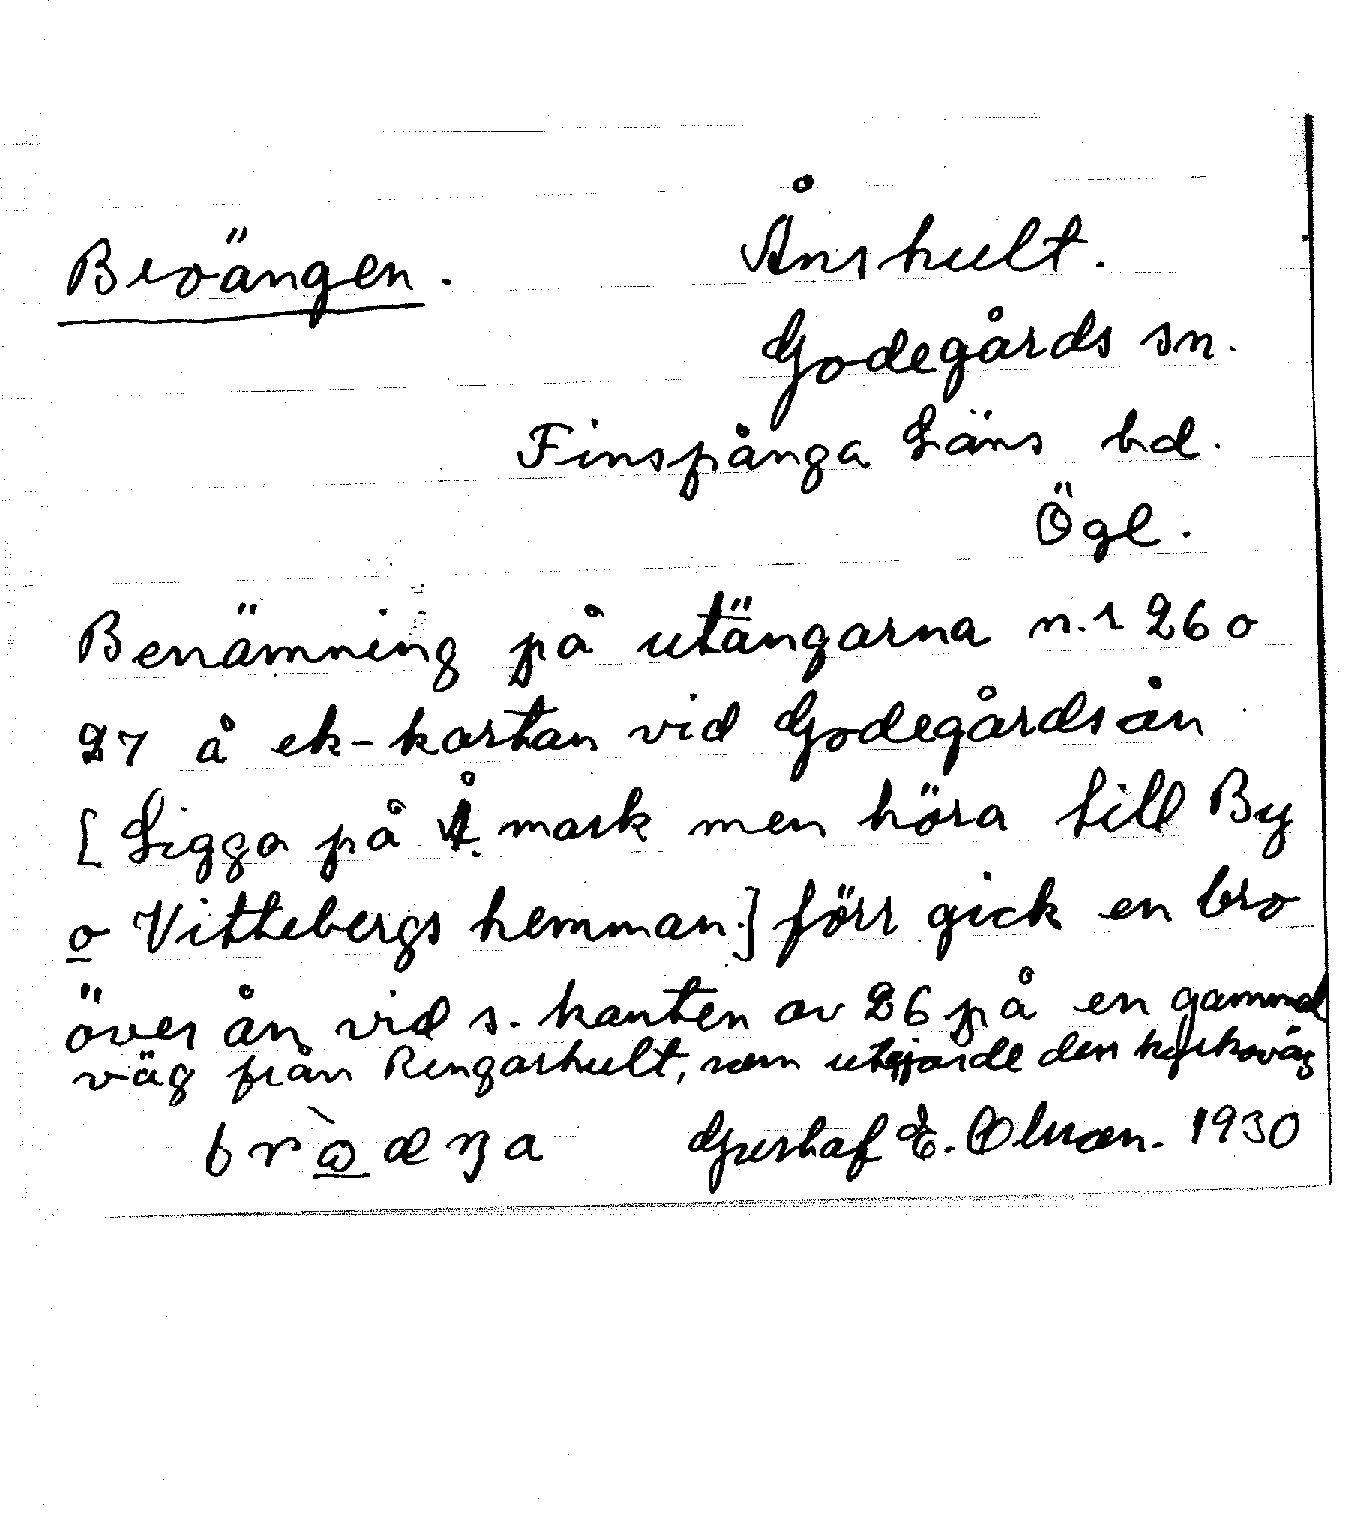 Broängen.
Ånshult.
Godegårds sn.
Finspånga Läns hd.
Ögl.
Benämning på utängarna n.r 26 o
27 å ek-kartan vid Godegårdsån
[Ligga på Å. mark men höra till By
o Vittebergs hemman.] förr gick en bro
över ån vid s. kanten av 26 på en gammal
väg från Ringarhult, som utgjorde den kyrkoväg
Gustaf E. Olsson. 1930